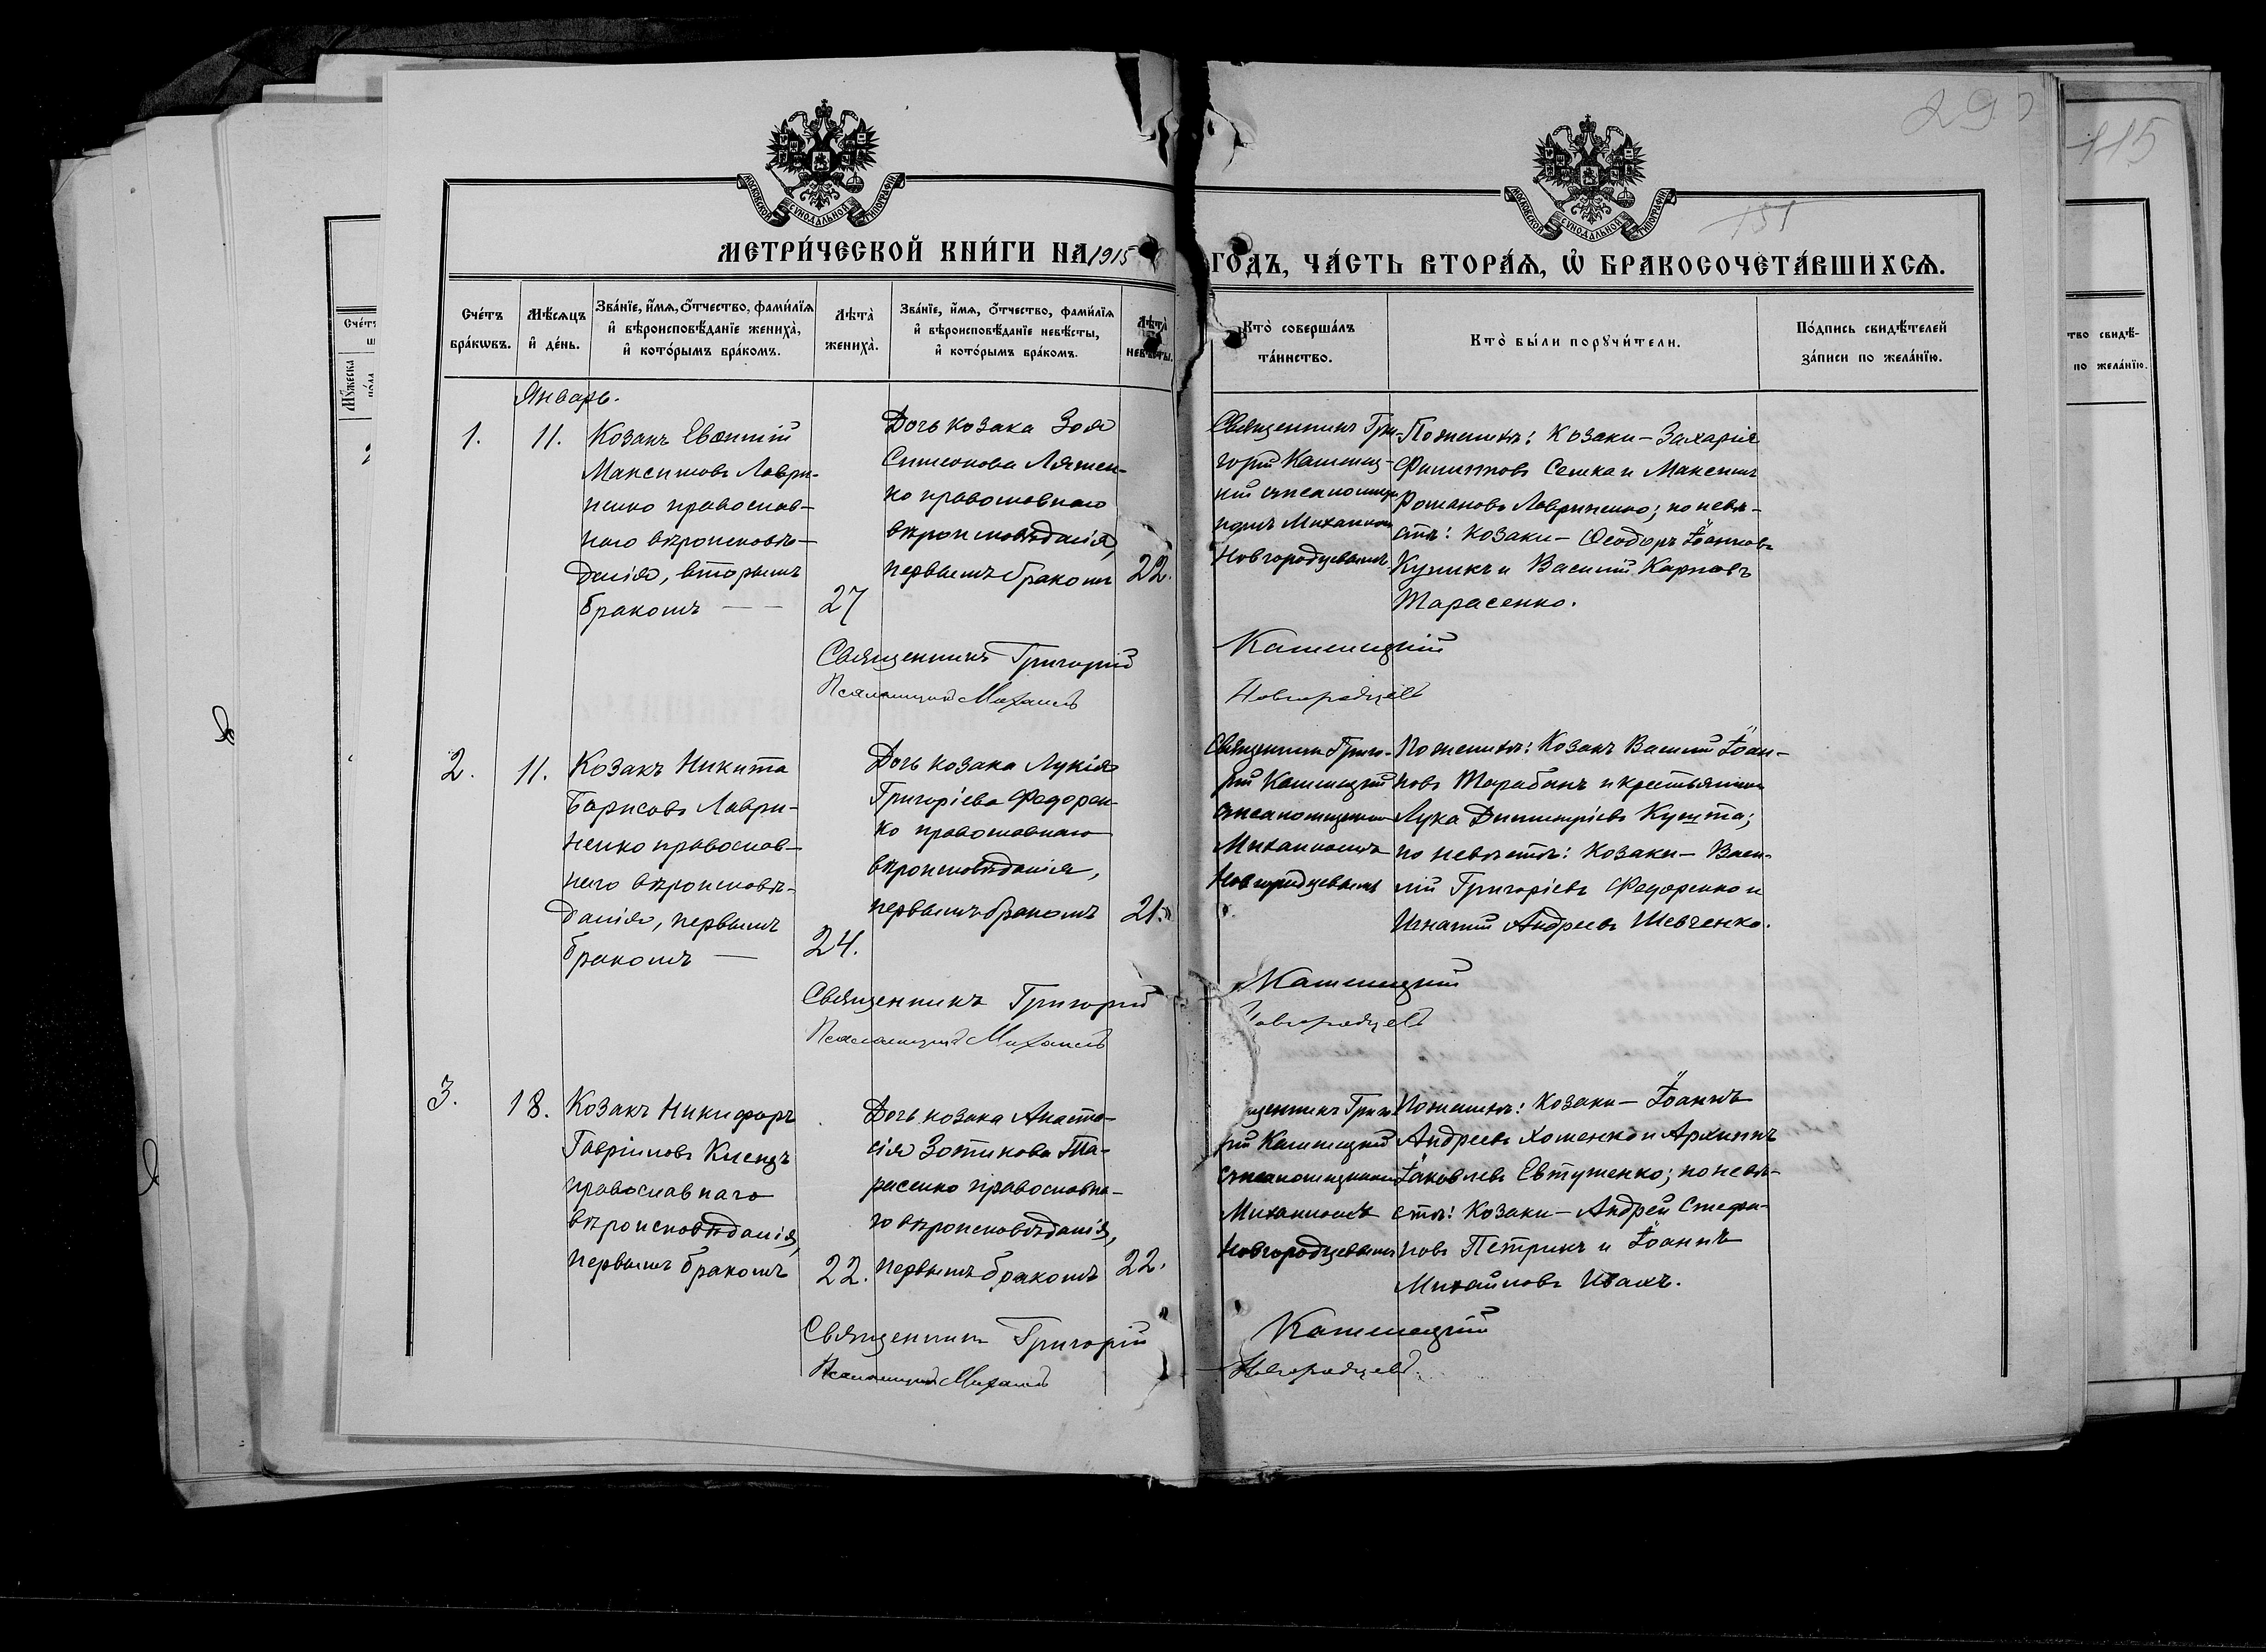 290
115
151
МОСКОВСКОЙ СѴНОДАЛЬНОЙ ТИПОГРАФІИ
МОСКОВСКОЙ СѴНОДАЛЬНОЙ ТИПОГРАФІИ
МЕТРИ́ЧЕСКОЙ КНИ́ГИ НА 1915
ГО́ДЪ, ЧА́СТЬ ВТОРА́Ѧ, Ѡ҆ БРАКОСОЧЕТА́ВШИХСѦ.
Сче́тъ
бра́кѡвъ.
Мѣ́сѧцъ
и҆ де́нь.
Зва́нїе, и҆́мѧ, ѻ҆́тчество, фами́лїѧ
и҆ вѣроисповѣ́данїе жениха̀,
и҆ кото́рымъ бра́комъ.
Лѣта̀
жениха̀.
Зва́нїе, и҆́мѧ, ѻ҆́тчество, фами́лїѧ
и҆ вѣроисповѣ́данїе невѣ́сты,
и҆ кото́рымъ бра́комъ.
Лѣта̀
невѣ́сты.
Кто̀ соверша́лъ
та́инство.
Кто̀ бы́ли порꙋчи́тели.
По́дпись свидѣ́телей
за́писи по жела́нїю.
Январь.
1.
11.
Козакъ Евѳимій
Максимовъ Лаври-
ненко православ-
наго вѣроисповѣ-
данія, вторымъ
бракомъ — —
27
Дочь козака Зоя
Симеонова Ляшен-
ко православнаго
вѣроисповѣданія,
первымъ бракомъ
22.
Священникъ Гри-
горій Каменец-
кій съ псаломщи-
комъ Михаиломъ
Новгородцевымъ.
По женихѣ: Козаки – Захарія
Филипповъ Семка и Максимъ
Романовъ Лавриненко; по невѣ-
стѣ: козаки – Ѳеодоръ Іоанновъ
Куликъ и Василій Карповъ
Тарасенко.
Священникъ Григорій Каменецкій
Псаломщикъ Михаилъ Новгородцевъ
2.
11.
Козакъ Никита
Борисовъ Лаври-
ненко православ-
наго вѣроисповѣ-
данія, первымъ
бракомъ —
24.
Дочь козака Лукія
Григорієва Федорен-
ко православнаго
вѣроисповѣданія,
первымъ бракомъ
21.
Священникъ Григо-
рій Каменецкій
съ псаломщикомъ
Михаиломъ
Новгородцевымъ
По женихѣ: Козакъ Василій Іоан-
новъ Тарабанъ и крестьянинъ
Лука Димитріевъ Кушта;
по невѣстѣ: козаки – Васи-
лій Григоріевъ Федоренко и
Игнатій Андреевъ Шевченко.
Священникъ Григорій Каменецкій
Псаломщикъ Михаилъ Новгородцевъ
3.
18.
Козакъ Никифоръ
Гавріиловъ Киецъ
православнаго
вѣроисповѣданія,
первымъ бракомъ
22.
Дочь козака Анаста-
сія Зотикова Та-
расенко православна-
го вѣроисповѣданія,
первымъ бракомъ
22.
щенникъ Григо-
рій Каменецкій
съ псаломщикомъ
Михаиломъ
Новгородцевымъ
По женихѣ: козаки – Іоаннъ
Андреевъ Хоменко и Архиппъ
Іаковлевъ Евтушенко; по невѣ-
стѣ: козаки – Андрей Стефа-
новъ Петрикъ и Іоаннъ
Михайловъ Ивахъ.
Священникъ Григорій Каменецкій
Псаломщикъ Михаилъ Новгородцевъ.